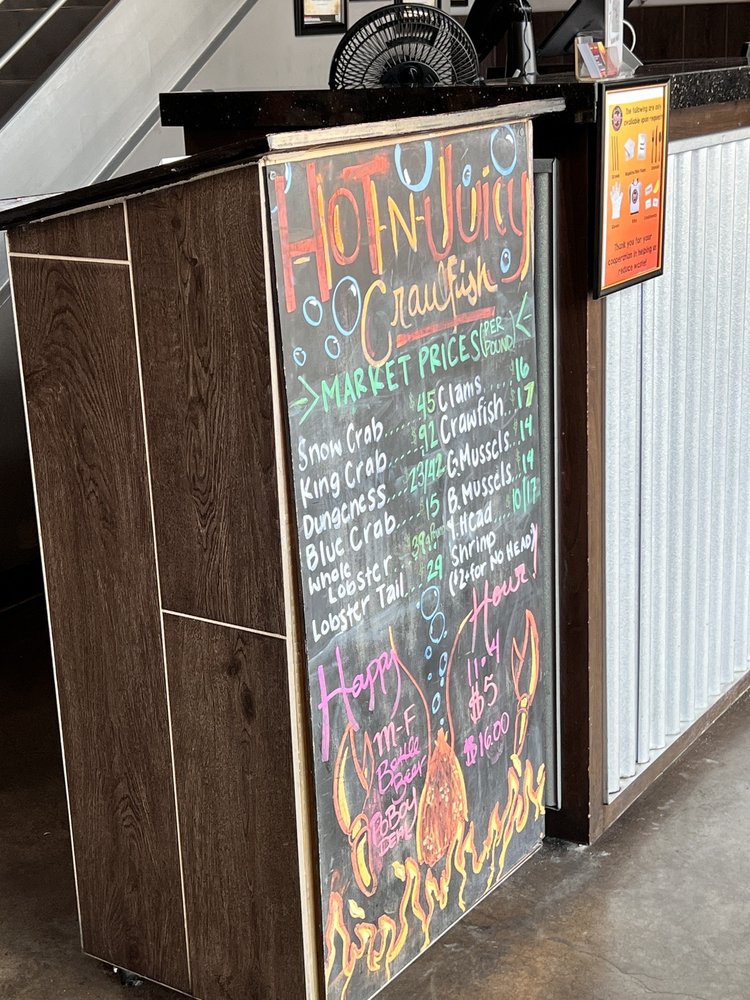 HOT-N-JUICY
Crawfish
MARKET PRICES (PER POUND)
Snow Crab.... $45
King Crab.... $92
Dungeness.... 23/42
Blue Crab... $15
Whole
Lobster... 39
Lobster Tail.. 29
Clams..... $16
Crawfish... $17
G. Mussels.. $14
B. Mussels.. $14
Head 10/17
Shrimp
($2+ for NO HEAD)
Happy Hour!
M-F 11-4
Bottle Beer $5
PoBoy DEAL $16.00
The following are only
available upon request:
Thank you for your
cooperation in helping us
reduce waste!